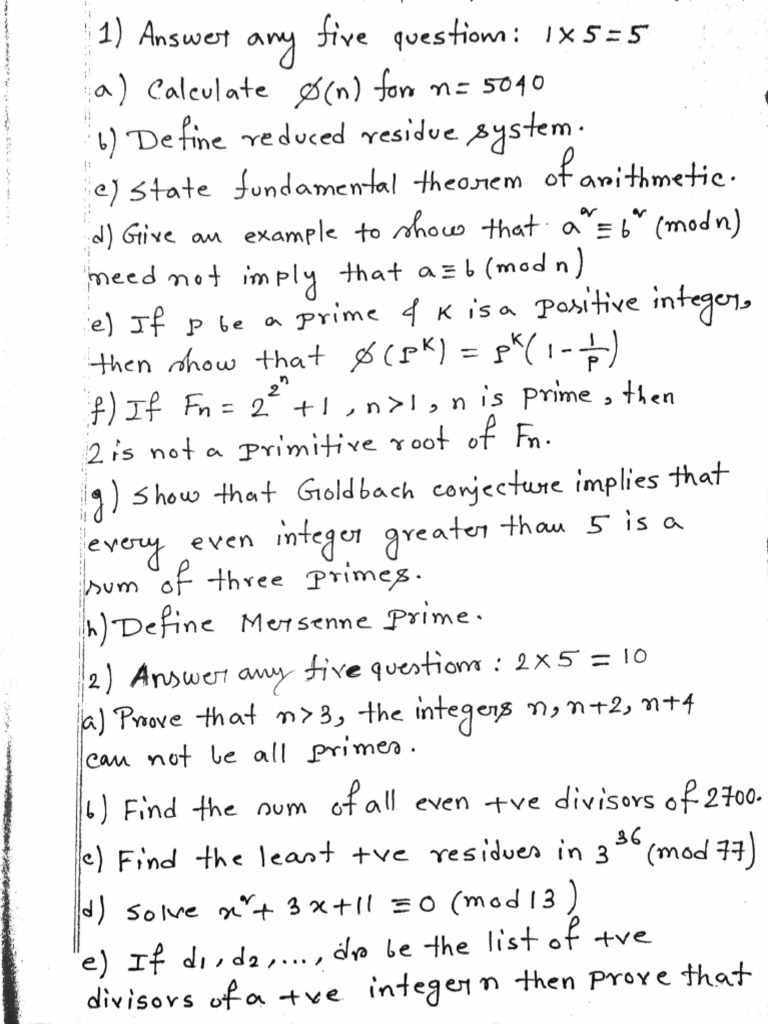 1) Answer any five question: 1 x 5 = 5
a) Calculate Ø(n) for n = 5040
b) Define reduced residue system.
c) State fundamental theorem of arithmetic.
d) Give an example to show that a² ≡ b² (mod n)
need not imply that a ≡ b (mod n)
e) If p be a prime & K is a positive integer,
then show that Ø(P^K) = P^K(1 - 1/P)
f) If Fn = 2^2^n + 1, n>1, n is prime, then
2 is not a primitive root of Fn.
g) Show that Goldbach conjecture implies that
every even integer greater than 5 is a
sum of three primes.
h) Define Mersenne Prime.
2) Answer any five question: 2 x 5 = 10
a) Prove that n>3, the integers n, n+2, n+4
can not be all primes.
b) Find the sum of all even +ve divisors of 2700.
c) Find the least +ve residues in 3^36 (mod 77)
d) Solve x² + 3x + 11 ≡ 0 (mod 13)
e) If d1, d2, ..., dr be the list of +ve
divisors of a +ve integer n then prove that